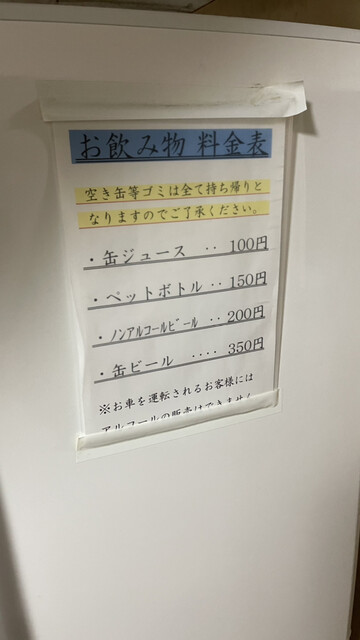 お飲み物 料金表
空き缶等ゴミは全て持ち帰りと
なりますのでご了承ください。
・缶ジュース ‥ 100円
・ペットボトル ‥ 150円
・ノンアルコールビール ‥ 200円
・缶ビール ‥‥ 350円
※お車を運転されるお客様には
アルコールの販売はできません